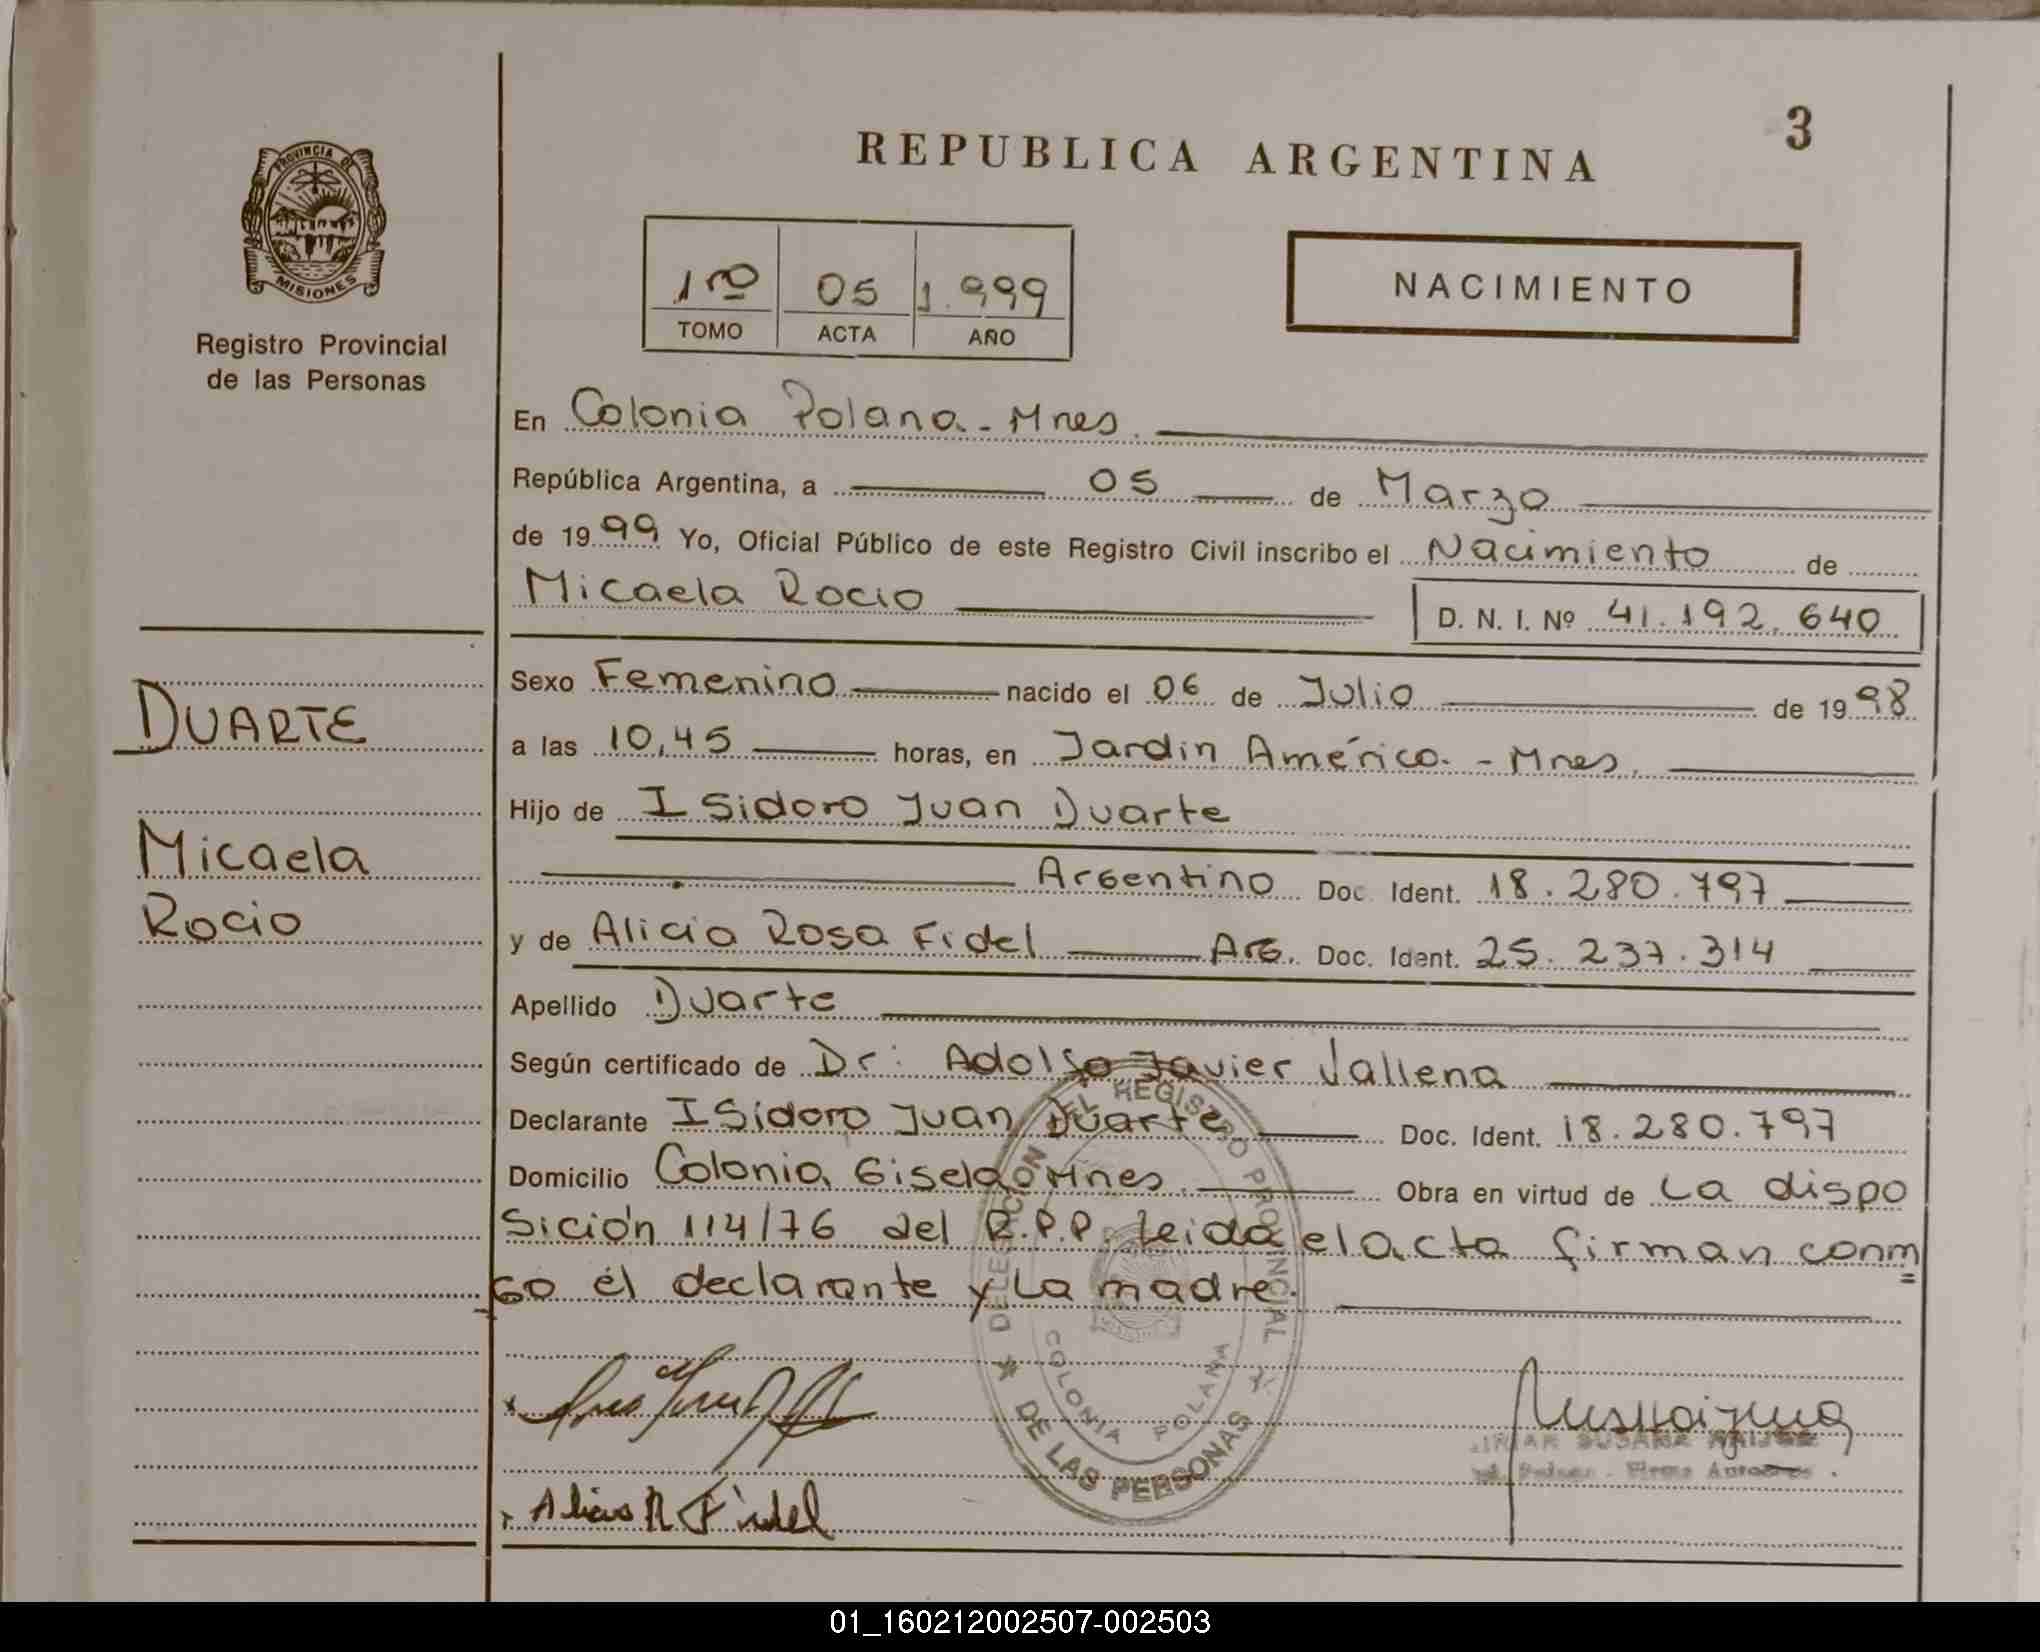 3
REPUBLICA ARGENTINA
PROVINCIA DE
MISIONES
Registro Provincial
de las Personas
1ro 05 1.999
TOMO ACTA AÑO
NACIMIENTO
En Colonia Polana - Mnes.
República Argentina, a 05 de Marzo
de 1999 Yo, Oficial Público de este Registro Civil inscribo el Nacimiento de
Micaela Rocio D. N. I. Nº 41.192.640
Sexo Femenino nacido el 06 de Julio de 1998
a las 10,45 horas, en Jardin América. - Mnes.
Hijo de Isidoro Juan Duarte
Argentino Doc. Ident. 18.280.797
y de Alicia Rosa Fidel Arg. Doc. Ident. 25.237.314
Apellido Duarte
Según certificado de Dr: Adolfo Javier Vallena
Declarante Isidoro Juan Duarte Doc. Ident. 18.280.797
Domicilio Colonia Gisela Mnes. Obra en virtud de La dispo
sición 114/76 del R.P.P. Leida el acta firman conm
go él declarante y La madre.
DUARTE
Micaela
Rocio
DELEGACION DEL REGISTRO PROVINCIAL
DE LAS PERSONAS
COLONIA POLANA
Alicia R Fidel
SUSANA
Firma
01_160212002507-002503